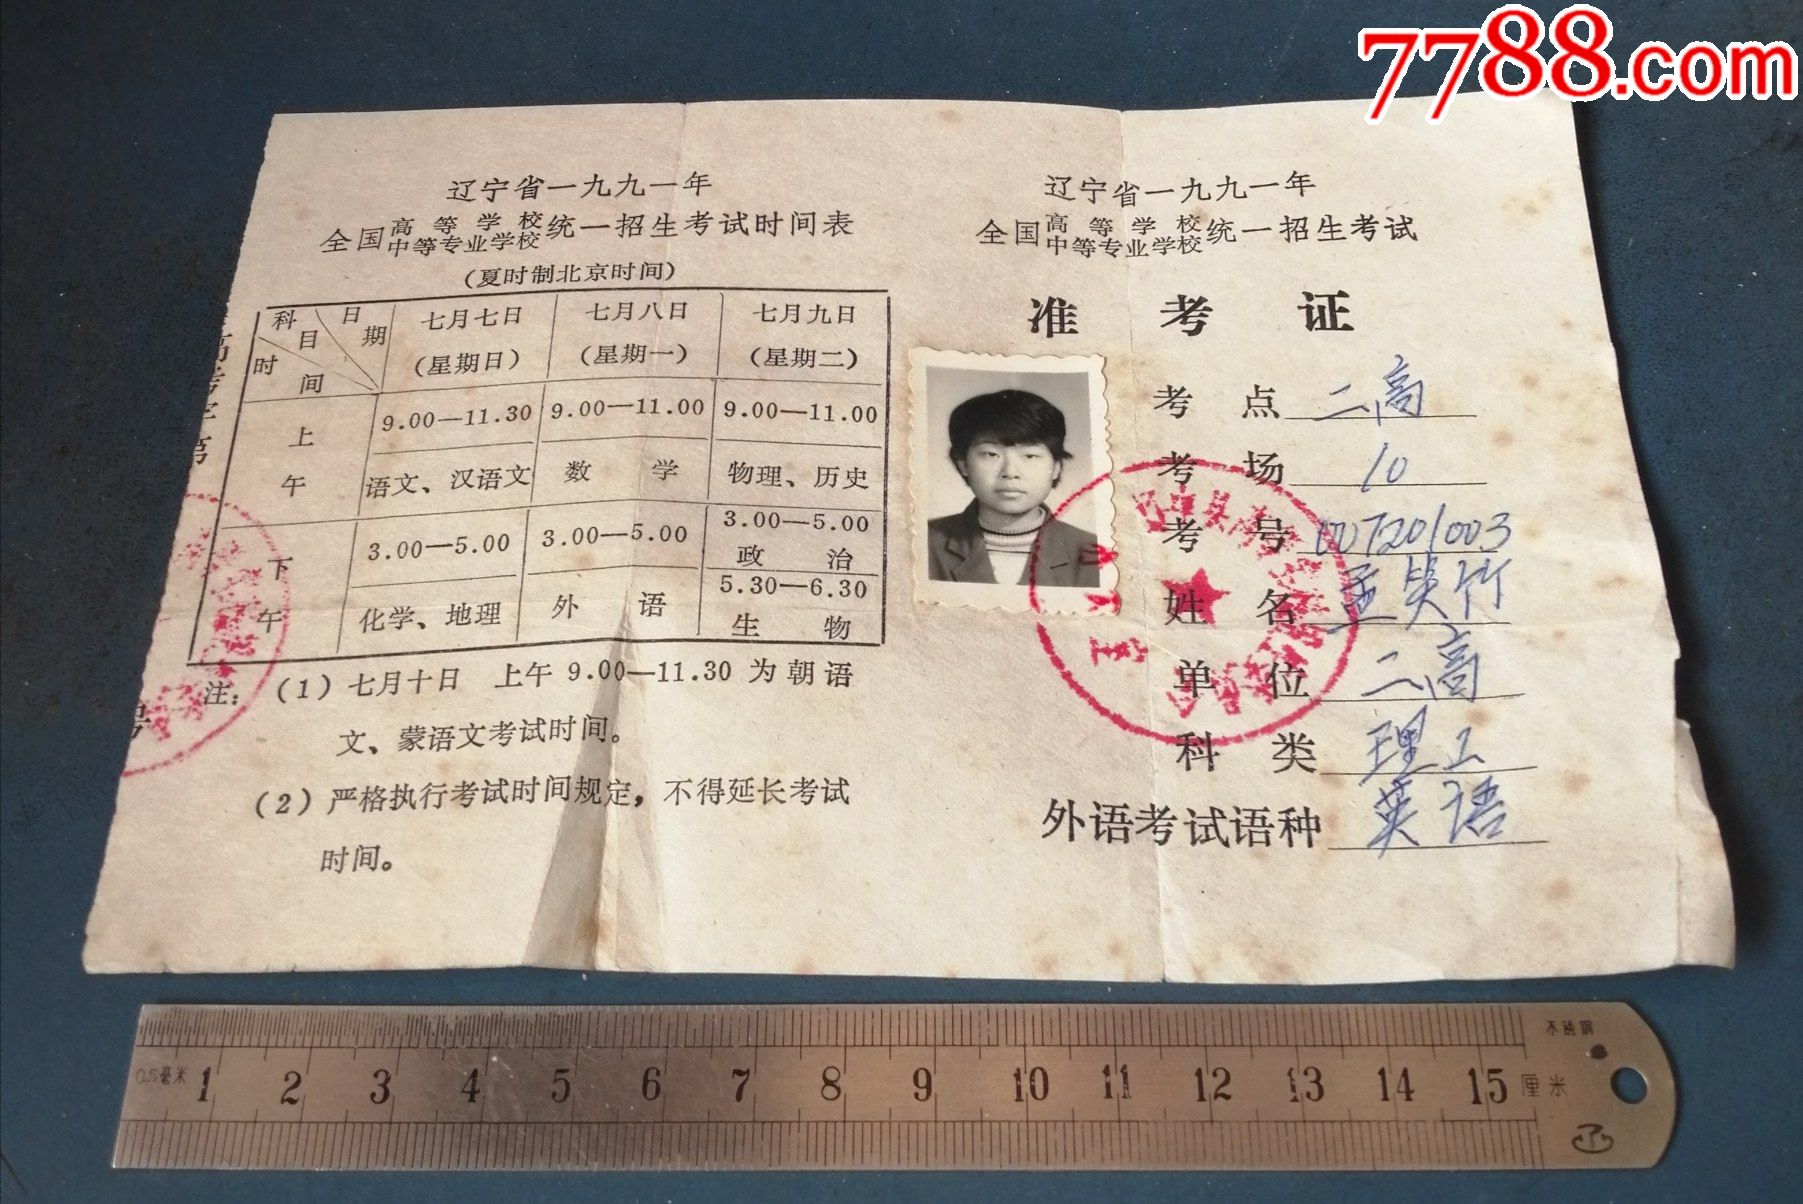 7788.com
辽宁省一九九一年
全国高等学校中等专业学校统一招生考试时间表
(夏时制北京时间)
科目 日期 时间
七月七日 七月八日 七月九日
(星期日) (星期一) (星期二)
上午
9.00—11.30 9.00—11.00 9.00—11.00
语文、汉语文 数学 物理、历史
下午
3.00—5.00 3.00—5.00 3.00—5.00
政治
5.30—6.30
化学、地理 外语 生物
注:(1)七月十日 上午 9.00—11.30 为朝语
文、蒙语文考试时间。
(2)严格执行考试时间规定,不得延长考试
时间。
辽宁省一九九一年
全国高等学校中等专业学校统一招生考试
准考证
考点 二高
考场 10
考号 007201003
姓名 孟笑竹
单位 二高
科类 理工
外语考试语种 英语
0.5毫米 1 2 3 4 5 6 7 8 9 10 11 12 13 14 15 厘米
不锈钢